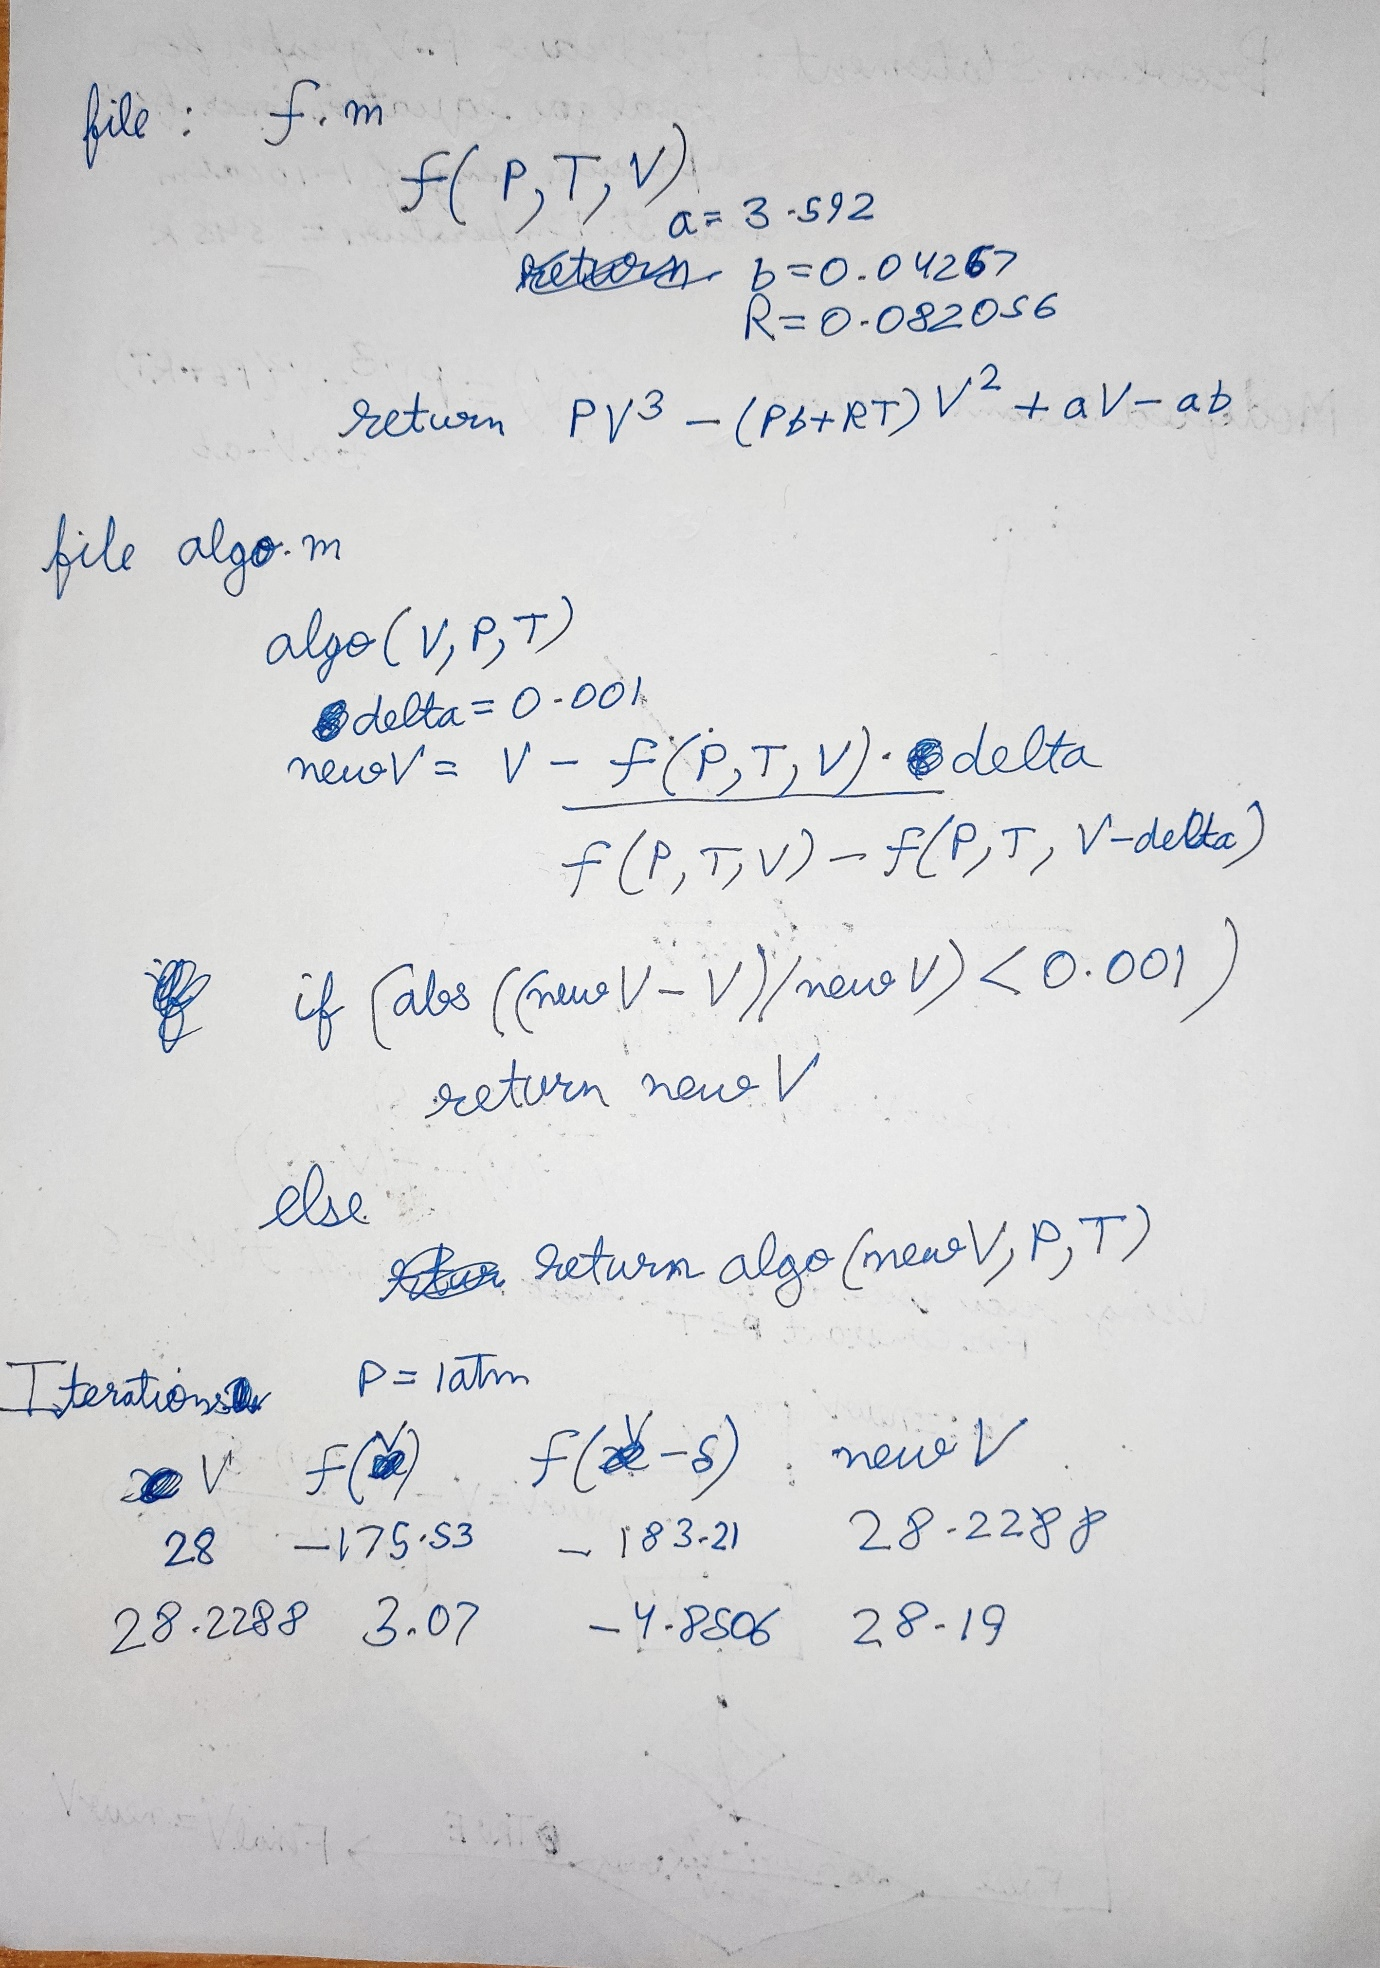 file : f.m
f(P,T,V)
a= 3.592
b=0.04267
R=0.082056
return PV³ – (Pb+RT)V² + aV – ab
file algo.m
algo(V,P,T)
delta = 0.001
newV = V – f(P,T,V).delta
f(P,T,V) – f(P,T,V-delta)
if (abs((newV – V)/newV) < 0.001)
return newV
else
return algo(newV,P,T)
Iterations P = 1atm
V f(V) f(V-δ) new V
28 –175.53 –183.21 28.2288
28.2288 3.07 –4.8506 28.19